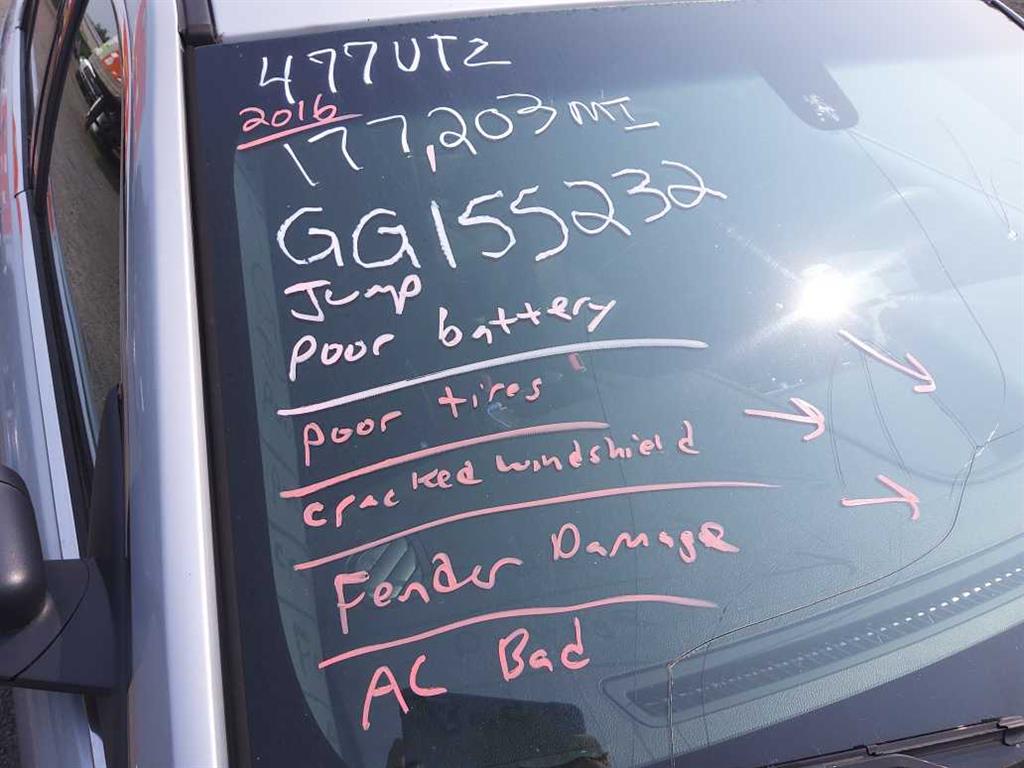 477UTZ
2016
177,203 MI
GG155232
Jump
Poor battery
Poor tires
cracked windshield
Fender Damage
AC Bad